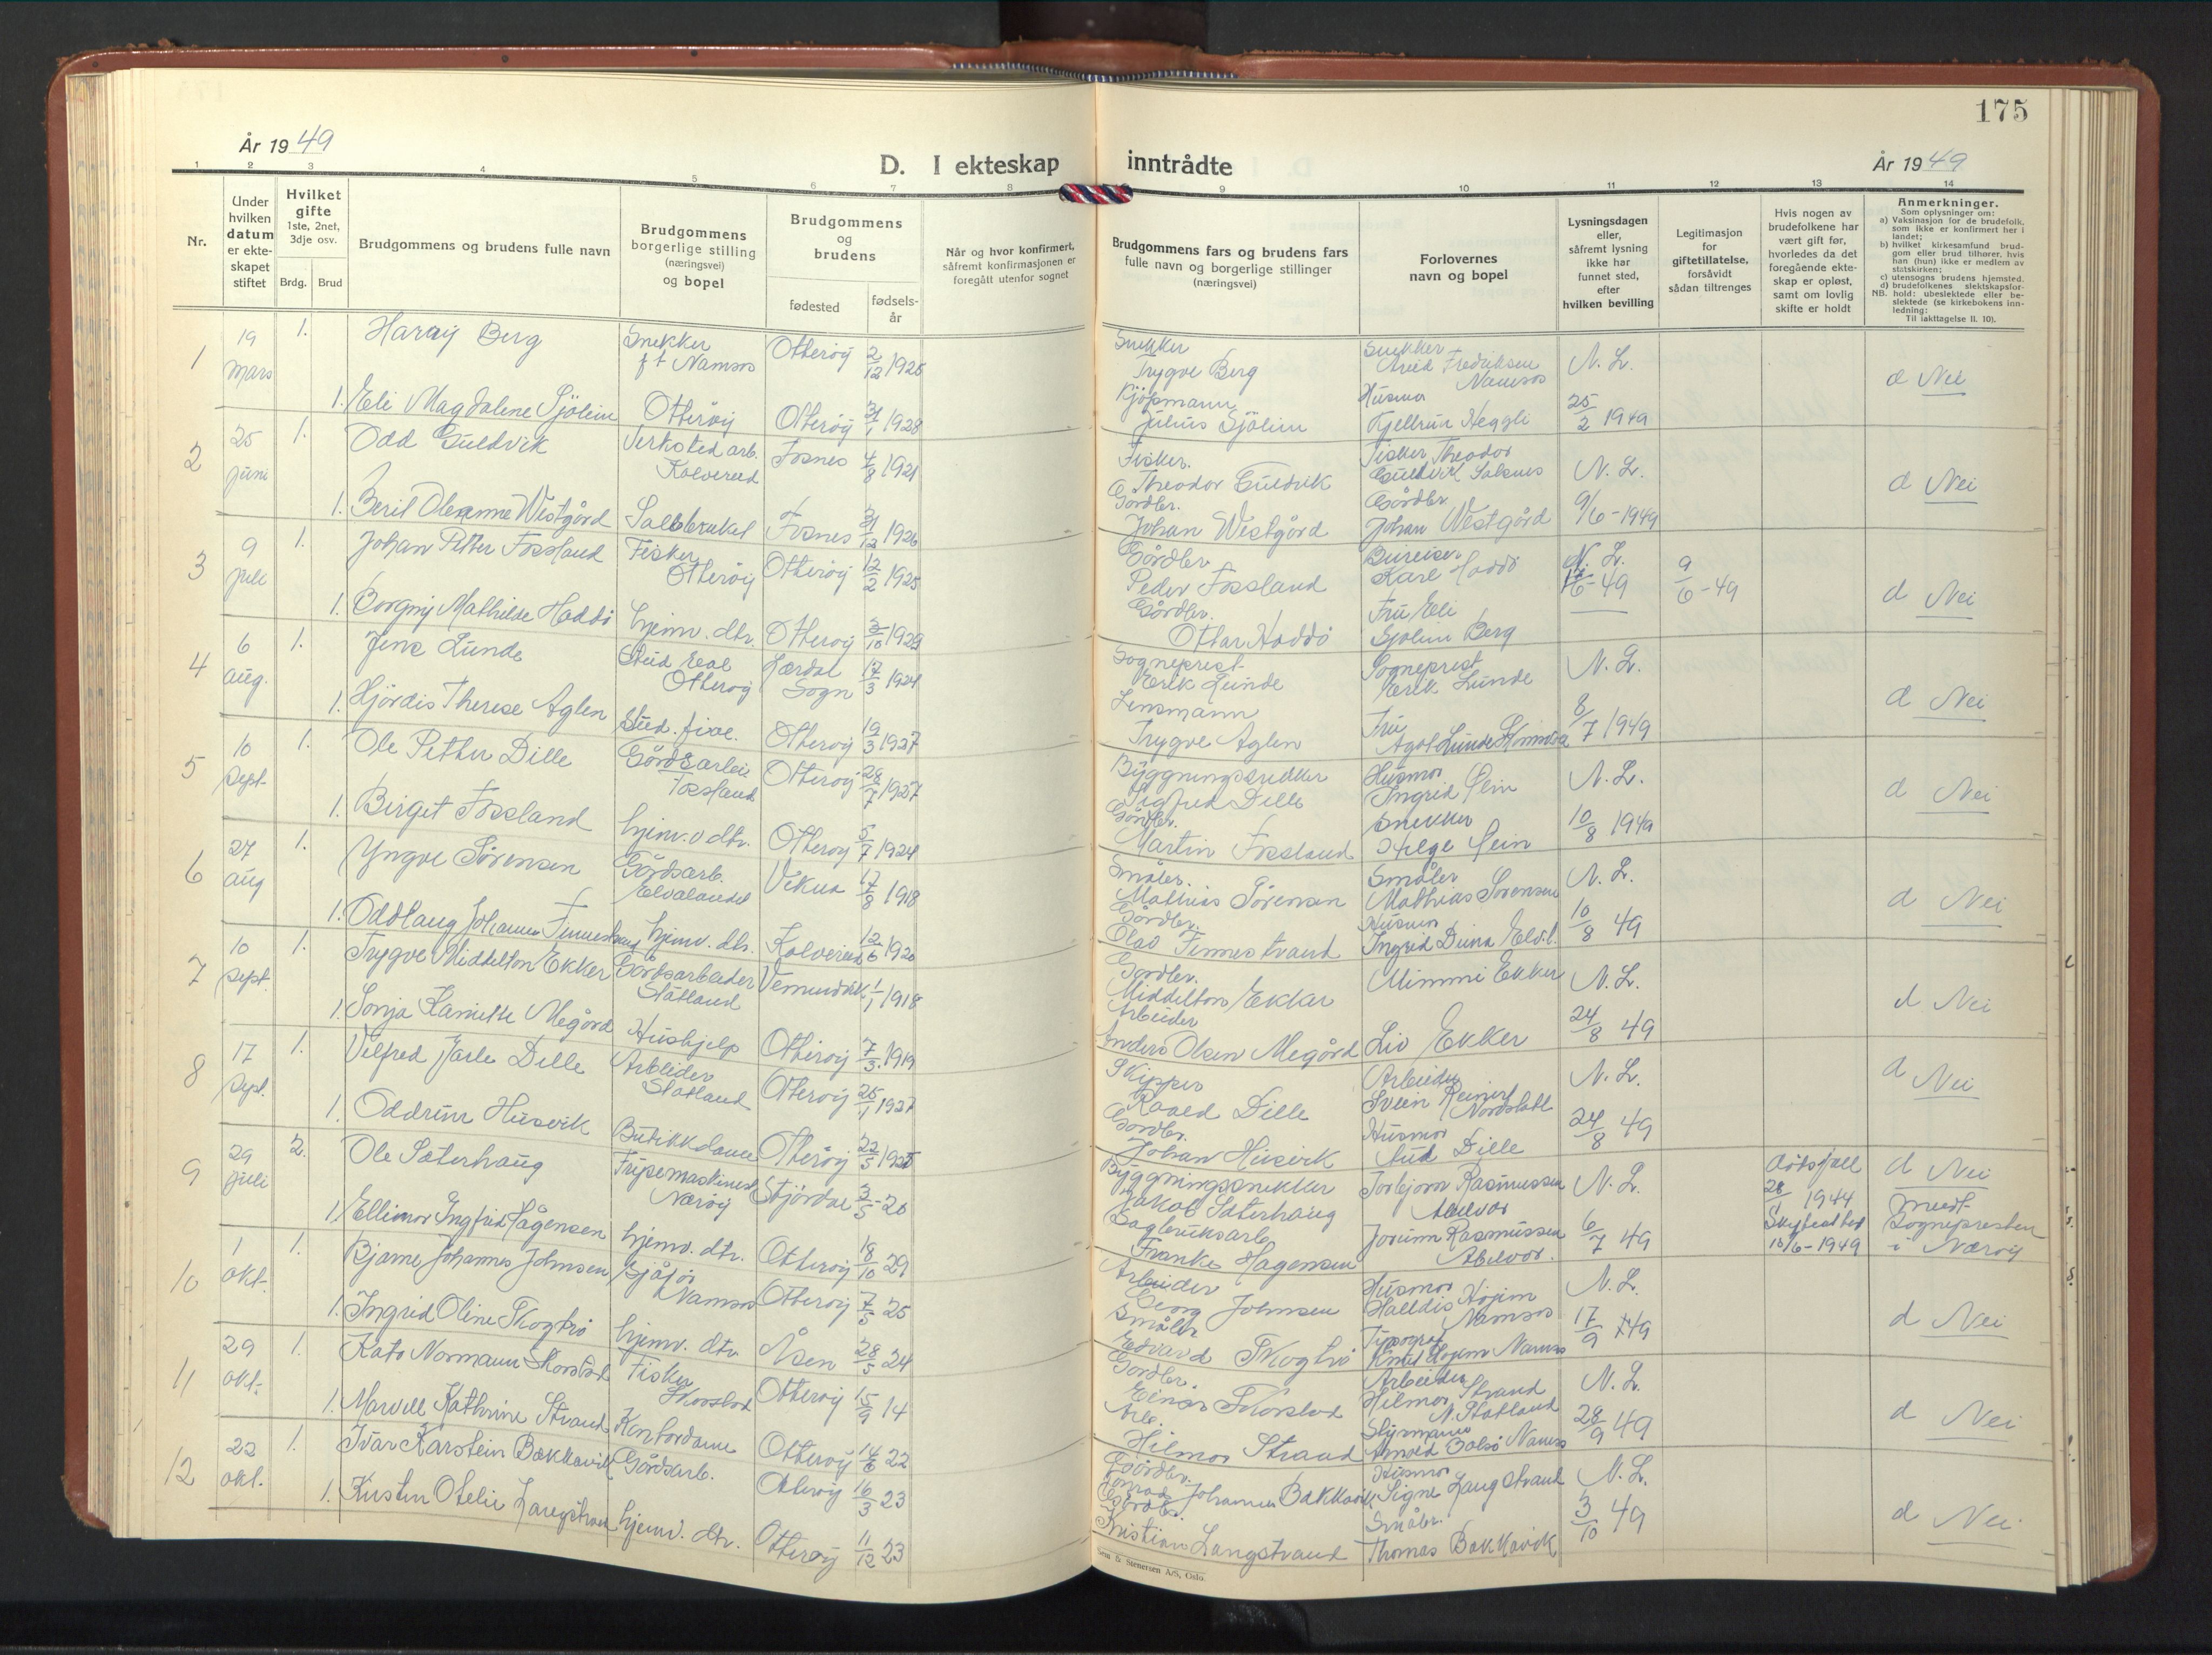 175
År 1949
D. I ekteskap inntrådte
År 1949
1 2 3 4 5 6 7 8 9 10 11 12 13 14
Nr.
Under hvilken datum er ekteskapet stiftet
Hvilket gifte 1ste, 2net, 3dje osv.
Brdg. Brud
Brudgommens og brudens fulle navn
Brudgommens borgerlige stilling (næringsvei) og bopel
Brudgommens og brudens
fødested
fødselsår
Når og hvor konfirmert, såfremt konfirmasjonen er foregått utenfor sognet
Brudgommens fars og brudens fars fulle navn og borgerlige stillinger (næringsvei)
Forlovernes navn og bopel
Lysningsdagen eller, såfremt lysning ikke har funnet sted, efter hvilken bevilling
Legitimasjon for giftetillatelse, forsåvidt sådan tiltrenges
Hvis nogen av brudefolkene har vært gift før, hvorledes da det foregående ekteskap er opløst, samt om lovlig skifte er holdt
Anmerkninger.
Som oplysninger om:
a) Vaksinasjon for de brudefolk, som ikke er konfirmert her i landet;
b) hvilket kirkesamfund brudgom eller brud tilhører, hvis han (hun) ikke er medlem av statskirken;
c) utensogns brudens hjemsted.
d) brudefolkenes slektskapsforhold: ubeslektede eller beslektede (se kirkebokens innledning:
NB. Til iakttagelse II. 10).
1 19 mars 1. Harry Berg Snekker f t Namsos Otterøy 2/12 1925 Snekker Trygve Berg Snekker Arvid Fredriksen Namsos N. L. d Nei
1. Eli Magdalene Sjölin Otterøy Otterøy 31/1 1928 Kjöpmann Julius Sjölin Husmor Kjellrun Heggli 25/2 1949
2 25 juni 1. Odd Guldvik Verksted arb. Kolvereid Fosnes 4/8 1921 Fisker. Theodor Guldvik Fisker Theodor Guldvik Salsnes N. L. d Nei
1. Beril Oleanne Westgård Salsbruket Fosnes 31/12 1926 Gårdbr. Johan Westgård Gårdbr Johan Westgård 9/6-1949
3 9 juli 1. Johan Petter Fossland Fisker Otterøy Otterøy 12/2 1925 Gårdbr Peder Fossland Bureiser Karl Haddo N. L. 17/6-49 9/6-49 d Nei
1. Borgny Mathilde Haddo hjemv. dtr. Otterøy 3/10 1929 Gårdbr. Ottar Haddo Fru Eli Sjölin Berg
4 6 aug. 1. Jens Lunde Stud real Otterøy Lærdal Sogn 17/3 1924 Sogneprest Erik Lunde Sogneprest Erik Lunde N. L. d Nei
1. Hjördis Therese Aglen Stud. Otterøy 19/3 1927 Lensmann Trygve Aglen Fru Agot Lunde 8/7 1949
5 10 sept. 1. Ole Petter Dille Gårdsarbeid Fossland Otterøy 28/7 1927 Byggningssnedker Sigfred Dille Husmor Ingrid N. L. d Nei
1. Birget Fossland hjemv. dtr. Otterøy 5/7 1924 Gårdbr. Martin Fossland Snekker Helge 10/8 1949
6 27 aug 1. Yngve Sørensen Gårdsarb. Elvalandet Vikna 17/8 1918 Småbr. Mathias Sørensen Småbr Mathias Sørensen N. L. d Nei
1. Oddlaug Johanne Finnestrand hjemv. dtr. Kolvereid 12/6 1920 Gårdbr. Olav Finnestrand Husmor Ingrid Duna Elvl. 10/8 49
7 10 sept. 1. Trygve Middelton Ekker Gårdsarbeider Statland Vemundvik 1/1 1918 Gårdbr. Middelton Ekker Mimmi Ekker N. L. d Nei
1. Sonja Kamitte Megård Hushjelp Otterøy 7/3 1919 Arbeider Anders Olsen Megård Liv Ekker 24/8 49
8 17 sept. 1. Vilfred Jarle Dille Arbeider Statland Otterøy 25/1 1927 Skipper Dille Arbeider Svein N. L. d Nei
1. Oddrun Husvik Butikkdame Otterøy 22/5 1925 Gårdbr. Johan Husvik Husmor Aud Dille 24/8 49
9 29 juli 2. Ole Sæterhaug Nærøy Stjørdal 3/5-20 Byggningssnekker Jakob Sæterhaug Torbjørn Rasmussen Abelvær N. L. dødsfall 28/ 1944 d Nei
1. Ellinor Ingfrid Hågensen hjemv. dtr. Otterøy 18/10 29 Sagbruksarb. Frank Hagensen Jorunn Rasmussen Abelvær. 6/7 49 10/6-1949 Sognepresten i Nærøy
10 1 okt. 1. Bjarne Johannes Johnsen Sjåfør Namsos Otterøy 7/5 25 Arbeider Georg Johnsen Husmor Halldis Hojem Namsos N. L. d Nei
1. Ingrid Oline Skogtrø hjemv. dtr Åsen 28/5 24 Småbr Edvard Skogtrø Typograf Knut Hojem Namsos 17/9 49
11 29 okt. 1. Kato Normann Skorstad Fisker Skorstad Otterøy 15/9 14 Gårdbr. Einar Skorstad Arbeider Hilmar Strand N. Statland N. L. d Nei
1. Kathrine Strand Kontordame Otterøy 14/6 22 Arb. Hilmar Strand Styrmann Arnold Namsos 28/9 49
12 22 okt. 1. Ivar Karstein Bakkavik Gårdsarb. Otterøy 16/3 23 Gårdbr. Konrad Johannes Bakkavik Husmor Signe Langstrand N. L. d Nei
1. Kirsten Otelie Langstrand hjemv. dtr. Otterøy 11/12 23 Gårdbr. Kristian Langstrand Småbr. Thomas Bakkavik 3/10 49
Sem & Stenersen A/S, Oslo.